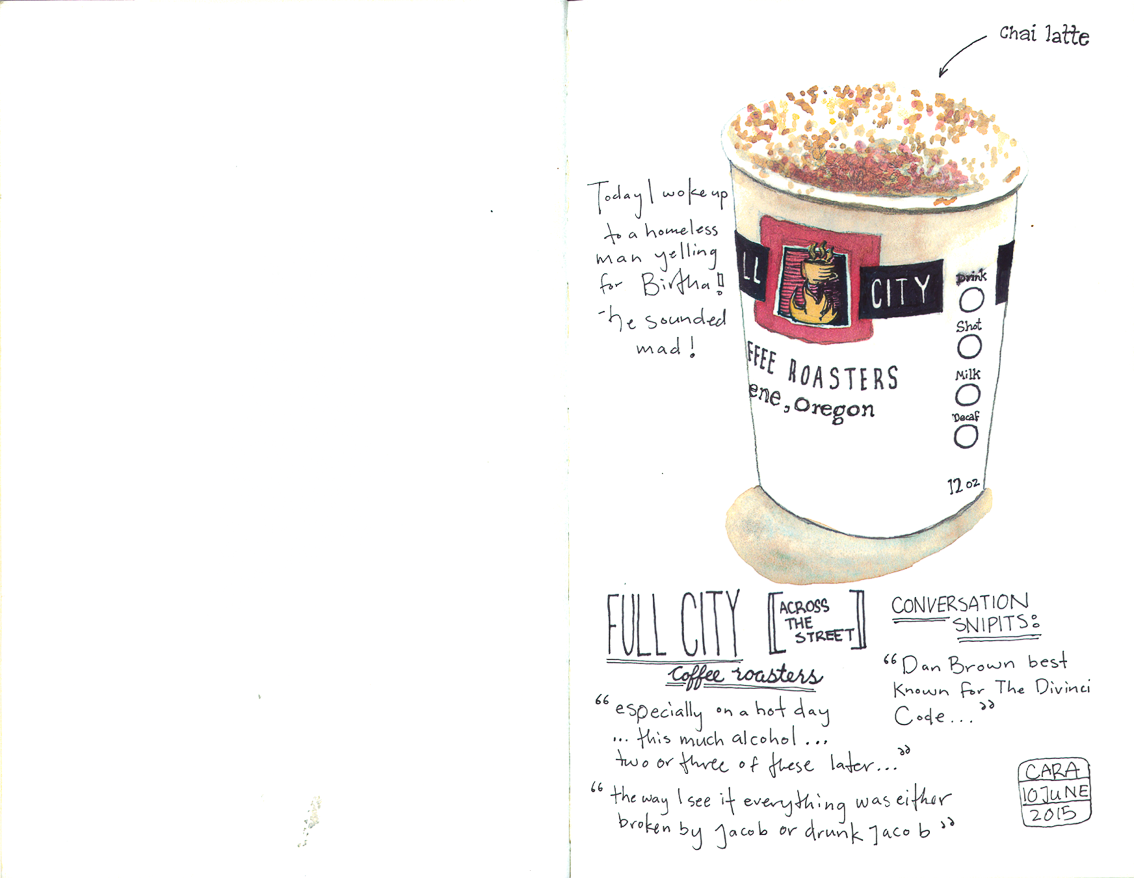 chai latte
Today I woke up
to a homeless
man yelling
for Birtha!!
- he sounded
mad!
LL
CITY
FFEE ROASTERS
ene, Oregon
Drink
Shot
Milk
Decaf
12 oz
FULL CITY
coffee roasters
[[ACROSS
THE
STREET]]
"especially on a hot day
... this much alcohol ...
two or three of these later..."
"the way I see it everything was either
broken by Jacob or drunk Jacob"
CONVERSATION
SNIPITS:
"Dan Brown best
Known for The Divinci
Code..."
CARA
10 JUNE
2015